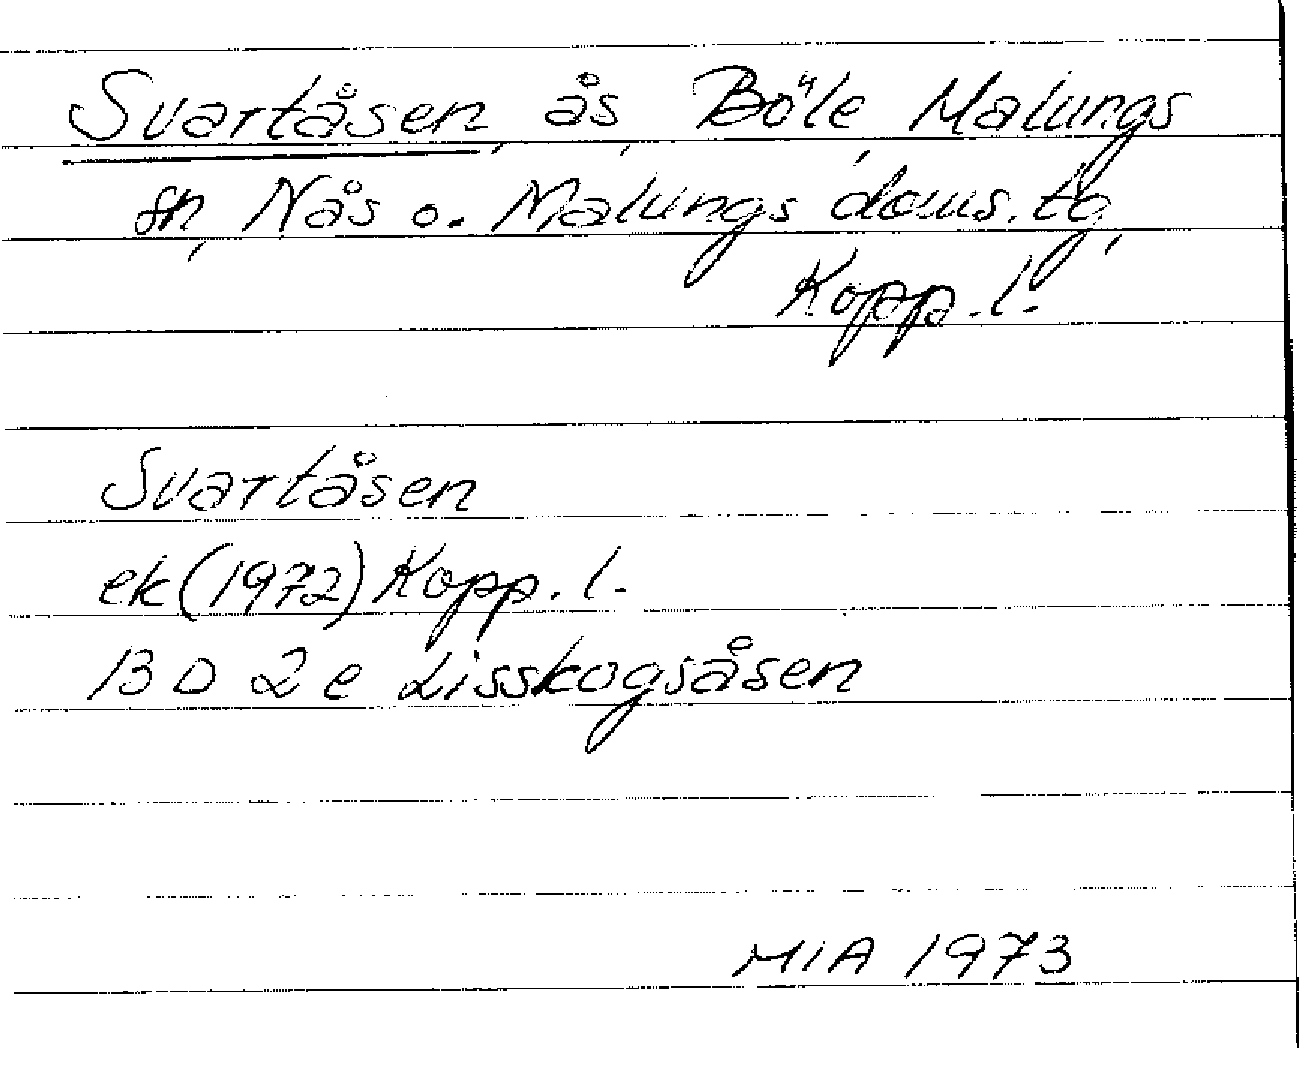 Svartåsen, ås, Böle, Malungs
sn, Nås o. Malungs doms. tg,
Kopp. l.
Svartåsen
ek (1972) Kopp. l.
13 D 2 e Lisskogsåsen
MIA 1973